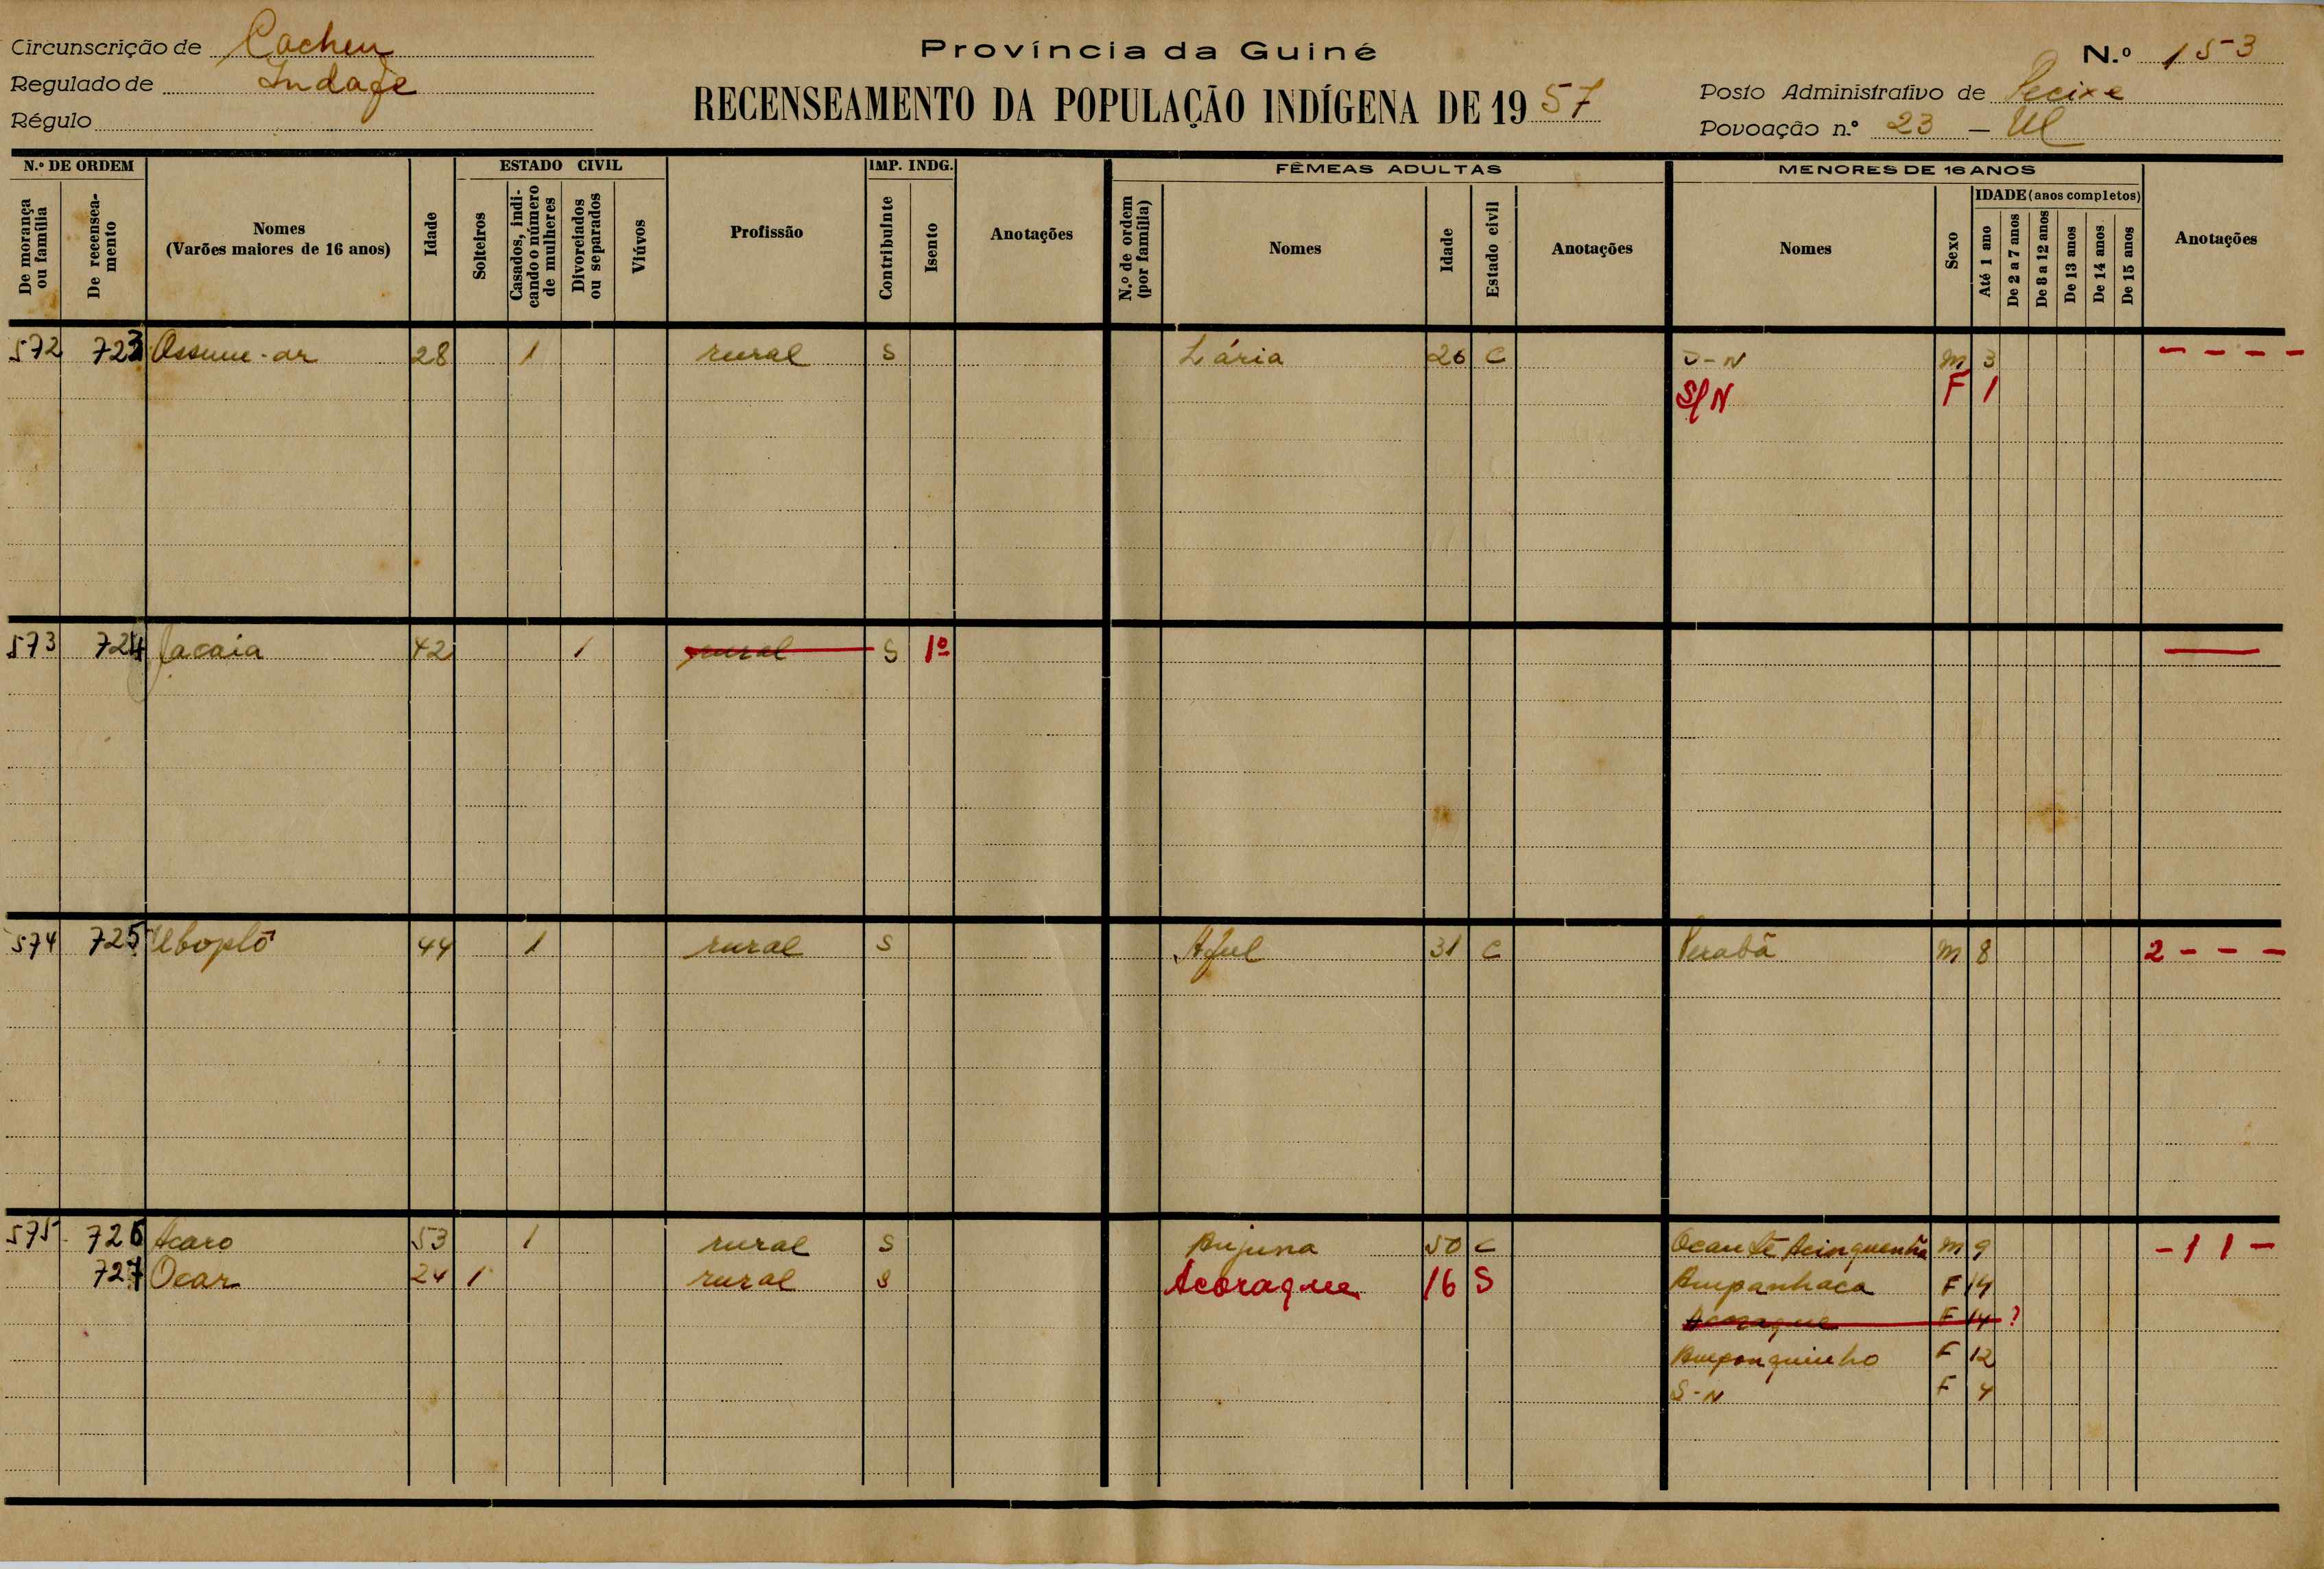 Circunscrição de Cacheu
Regulado de Indafe
Régulo
Província da Guiné
RECENSEAMENTO DA POPULAÇÃO INDÍGENA DE 1957
N.º 153
Posto Administrativo de Pecixe
Povoação n.º 23 — Ul
N.º DE ORDEM ESTADO CIVIL IMP. INDG. FÊMEAS ADULTAS MENORES DE 16 ANOS
De morança ou família
De recenseamento
Nomes (Varões maiores de 16 anos)
Idade
Solteiros
Casados, indicando o número de mulheres
Divorciados ou separados
Viúvos
Profissão
Contribuinte
Isento
Anotações
N.º de ordem (por família)
Nomes
Idade
Estado civil
Anotações
Nomes
Sexo
IDADE (anos completos)
Até 1 ano
De 2 a 7 anos
De 8 a 12 anos
De 13 anos
De 14 anos
De 15 anos
Anotações
572 723 Assume-ar 28 1 rural S Lária 26 C S-N M 3 - - - -
S/N F 1
573 724 Jacaia 42 1 rural S 1º —
574 725 Uboplô 44 1 rural S Aful 31 C M 8 2 - - -
575 726 Acaro 53 1 rural S Bujuna 50 C M 9 - 1 1 -
727 Ocar 24 1 rural S Acoraque 16 S Bupanhaca F 14
Acoraque F 14 ?
Buponquinho F 12
S-N F 4